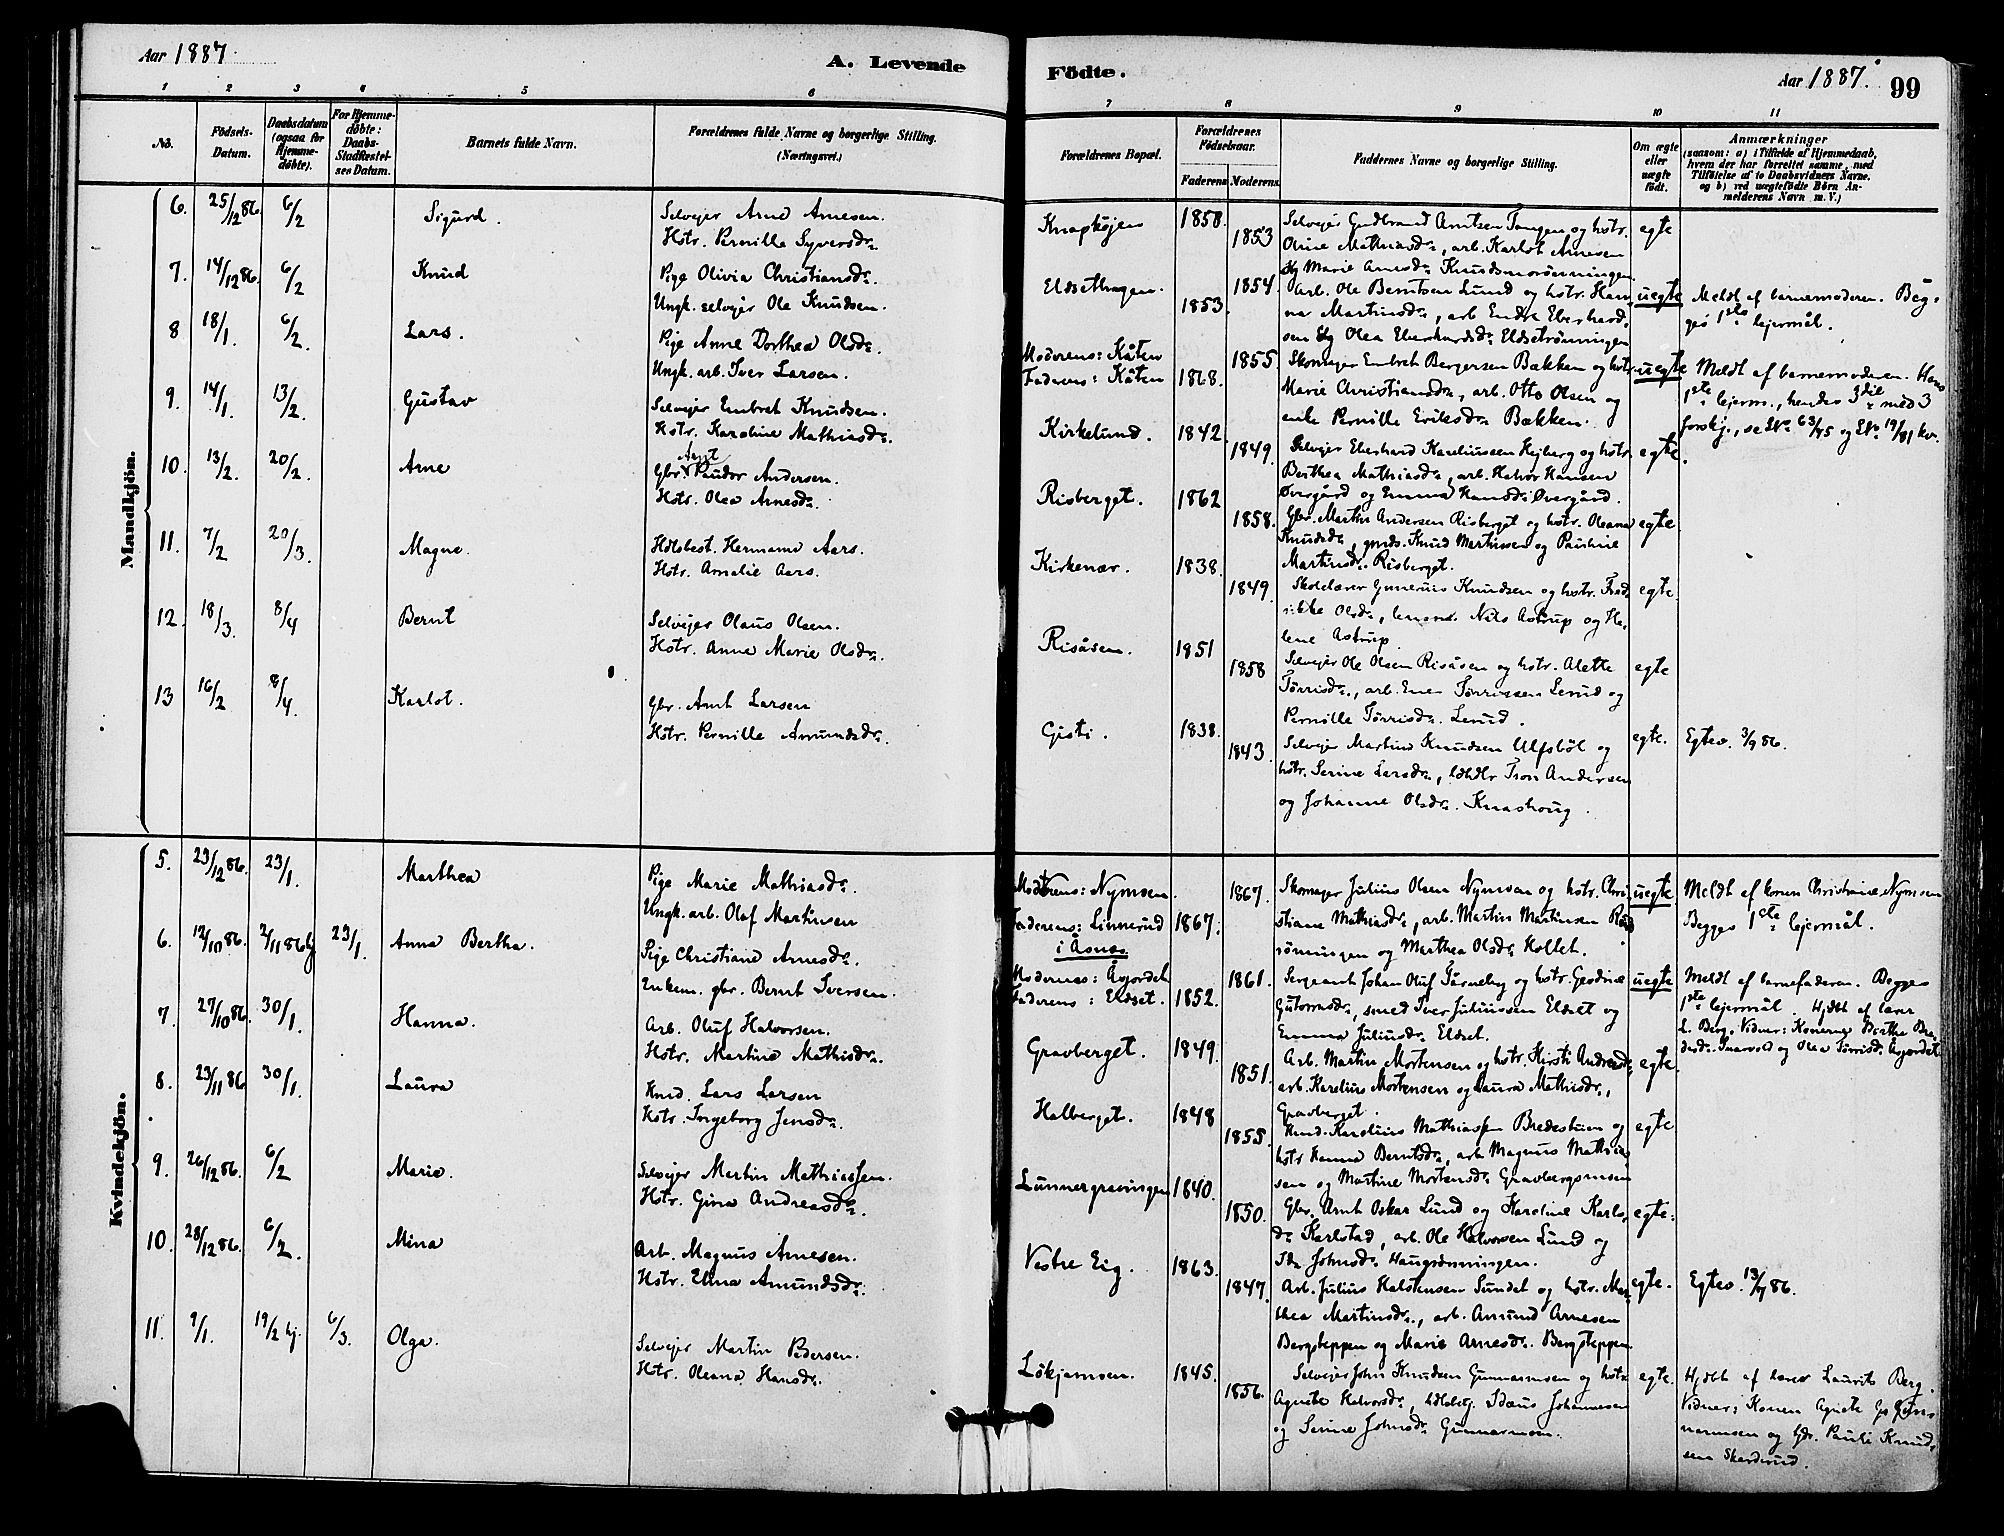 Aar 1887
A. Levende
1 2 3 4 5 6
No. Födsels-Datum. Daabsdatum (ogsaa for Hjemmedöbte). For Hjemmedöbte: Daabs-Stadfæstelses Datum. Barnets fulde Navn. Forældrenes fulde Navne og borgerlige Stilling. (Næringsvei.)
Mandkjön.
6. 25/12 86. 6/2 Sigurd. Selvejer Arne Arnesen.
Hstr. Pernille Syversdr.
7. 14/12 86. 6/2 Knud Pige Olivia Christiansdr.
Ungk. selvejer Ole Knudsen.
8 18/1. 6/2. Lars. Pige Anne Dorthea Olsdr.
Ungk. arb. Iver Larsen.
9. 14/1. 13/2. Gustav Selvejer Embret Knudsen.
Hstr. Karoline Mathiasdr.
10. 13/2. 20/2. Arne Gbr. Arnt Paudor Andersen.
Hstr. Olea Arnesdr.
11. 7/2 20/3. Magne. Hdlsbest. Hermann Aars.
Hstr. Amalie Aars.
12. 18/3. 8/4 Bernt Selvejer Olaus Olsen.
Hstr. Anne Marie Olsdr.
13 16/2 8/4. Karlot. Gbr. Arnt Larsen
Hstr. Pernille Amundsdr.
Kvindekjön.
5. 23/12 86. 23/1. Marthea Pige Marie Mathiasdr.
Ungk. arb. Olaf Martinsen
6. 12/10 86. 2/11 86 hj 23/1. Anna Bertha. Pige Christiane Arnesdr.
Enkem. gbr. Bernt Iversen.
7. 27/10 86. 30/1. Hanna. Arb. Oluf Halvorsen.
Hstr. Martine Mathisdr.
8. 23/11 86 30/1. Laura Hmd. Lars Larsen
Hstr. Ingeborg Jensdr.
9. 26/12 86. 6/2 Marie. Selvejer Martin Mathiassen.
Hstr. Gina Andreasdr.
10. 28/12 86. 6/2. Mina Arb. Magnus Arnesen.
Hstr. Elina Amundsdr.
11. 9/1. 19/2 hj. 6/3. Olga. Selvejer Martin Pedersen.
Hstr. Oleana Hansdr.
Födte.
Aar 1887. 99
7 8 9 10 11
Forældrenes Bopæl. Forældrenes Födselsaar. Faderens Moderens. Faddernes Navne og borgerlige Stilling. Om ægte eller uægte födt. Anmærkninger (saasom: a) i Tilfælde af Hjemmedaab, hvem der har forrettet samme, med Tilföielse af to Daabsvidners Navne, og b) ved uægtefödte Börn Anmelderens Navn m. V.)
Knapkøjen 1858. 1853 Selvejer Gudbrand Arntsen Tangen og hstr. egte
Oline Mathiasdr., arb. Karlot Arnesen
og Marie Arnesdr. Knudsmorønningen
Eldsethagen. 1853. 1854. Arb. Ole Berntsen Lund og hstr. Han- uegte Meldt af barnemoderen. Beg-
na Martinsdr., arb Endre Eberhard- ges 1ste lejermål.
sen og Olea Eberhardsdr. Eldsetrønningen
Moderens: Kåten 1855. Skomager Embret Bergersen Bækken og hstr. uegte Meldt af barnemoderen. Hans
Faderens: Kåten 1868. Marie Christiansdr., arb. Otto Olsen og 1ste lejerm., hendes 3die med 3
enke Pernille Eriksdr. Bækken. forskj., se No 63/75 og No 19/81 kv.
Kirkelund. 1842. 1849. Selvejer Eberhard Kareliussen Hejberg og hstr. egte.
Berthea Mathiasdr., arb. Halvor Hansen
Øvergård og Emma Hansdr. Øvergård.
Risberget. 1862 1858. Gbr. Martin Andersen Risberget og hstr. Oleana egte.
Knudsdr., gmds. Knud Martinsen og Pauline
Martinsdr. Risberget.
Kirkenær. 1838. 1849. Skolelærer Gunerius Knudsen og hstr. Fred- egte.
rikke Olsdr., lensm. Nils Astrup og He-
lene Astrup.
Risåsen. 1851 1858 Selvejer Ole Olsen Risåsen og hstr. Alette egte
Tørrisdr., arb. Einer Tørrissen Lerud og
Pernille Tørrisdr. Lerud.
Gisti. 1838. 1843. Selvejer Martin Knudsen Ulfsbøl og egte. Egtev. 3/9 86.
hstr. Serine Larsdr., Tron Andersen
og Johanne Olsdr. Knashoug.
Moderens: Nymoen. 1867. Skomager Julius Olsen Nymoen og hstr. Chri- uegte Meldt af konen Christiane Nymoen
Faderens: Linnerud i Åsnes 1867. stiane Mathiasdr., arb. Martin Martinsen Begges 1ste lejermål.
rønningen og Marthea Olsdr. Kollet.
Moderens: Åsgordet 1861. Sergeant Johan Oluf Tørneby og hstr. uegte Meldt af barnefaderen. Begges
Faderens: Eldset. 1852. Gutormsdr., smed Iver Juliussen Eldset og 1ste lejermål. Hjdbt af lærer
Emma Juliusdr. Eldset. L. Berg. Vidner: Konerne Berthe
Snarvold og Olea Tørrisdr. Åsgordet.
Gravberget. 1849. 1851. Arb. Martin Mortensen og hstr. Kirsti Andreasdr. egte.
arb. Karelius Mortensen og Laura Mathisdr.,
Gravberget.
Halberget. 1848 1855. Hmd. Karelius Mathiassen Bredestuen og egte
hstr Hanna Berntsdr., arb Magnus Mathias-
sen og Martine Mortensdr. Gravbergsmoen
Lunnergravingen 1840. 1850. Gbr. Arnt Oskar Lund og Karoline Karls- egte.
dr. Karlstad, arb. Ole Halvorsen Lund og
Ida Johnsdr. Haugrønningen.
Vestre Eig. 1863. 1847. Arb. Julius Halstensen Sundet og hstr. Mar- egte. Egtev. 13/9 86.
thea Martinsdr., arb. Amund Arnesen
Bergsteppen og Marie Arnesdr. Bergsteppen
Løkjemoen. 1845. 1856. Selvejer John Knudsen Gunnarmoen og hstr. egte. Hjdbt af lærer Laurits Berg.
Agnete Halvorsdr., Idæus Johannesen Vidner: Konen Agnete
og Serine Johnsdr. Gunnarmoen. narmoen og Gbr. Pauli Knud-
sen Skarderud.